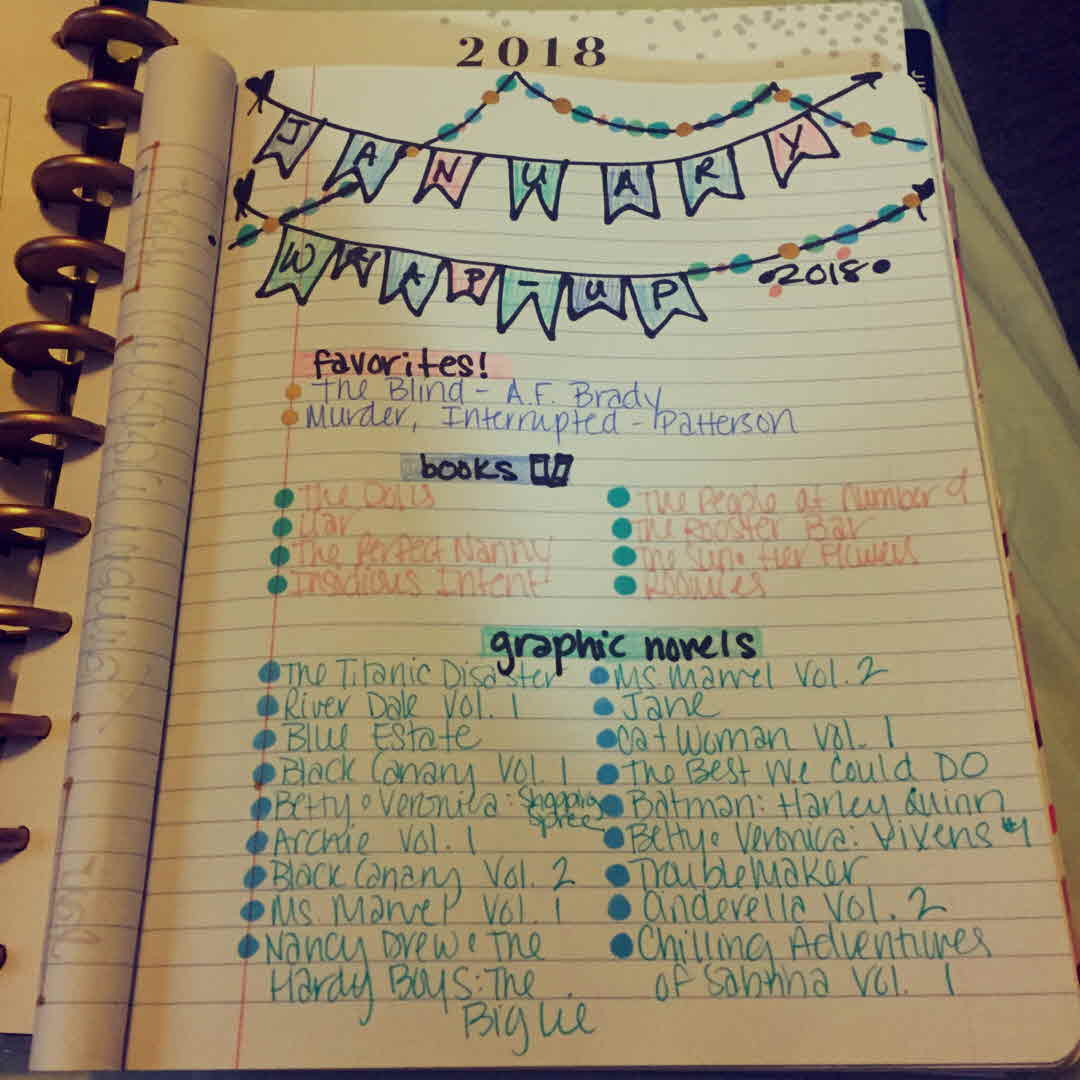 2018
JANUARY
WRAP-UP
•2018•
favorites!
The Blind - A.F. Brady
Murder, Interrupted - Patterson
books
The Dolls
Liar
The Perfect Nanny
Insidious Intent
The People at Number 9
The Rooster Bar
The Sun + Her Flowers
Roomies
graphic novels
The Titanic Disaster
River Dale Vol. 1
Blue Estate
Black Canary Vol. 1
Betty & Veronica: Shopping
Spree
Archie Vol. 1
Black Canary Vol. 2
Ms. Marvel Vol. 1
Nancy Drew & The
Hardy Boys: The
Big Lie
Ms. Marvel Vol. 2
Jane
Cat Woman Vol. 1
The Best We Could DO
Batman: Harley Quinn
Betty & Veronica: Vixens #1
TroubleMaker
Cinderella Vol. 2
Chilling Adventures
of Sabrina Vol. 1